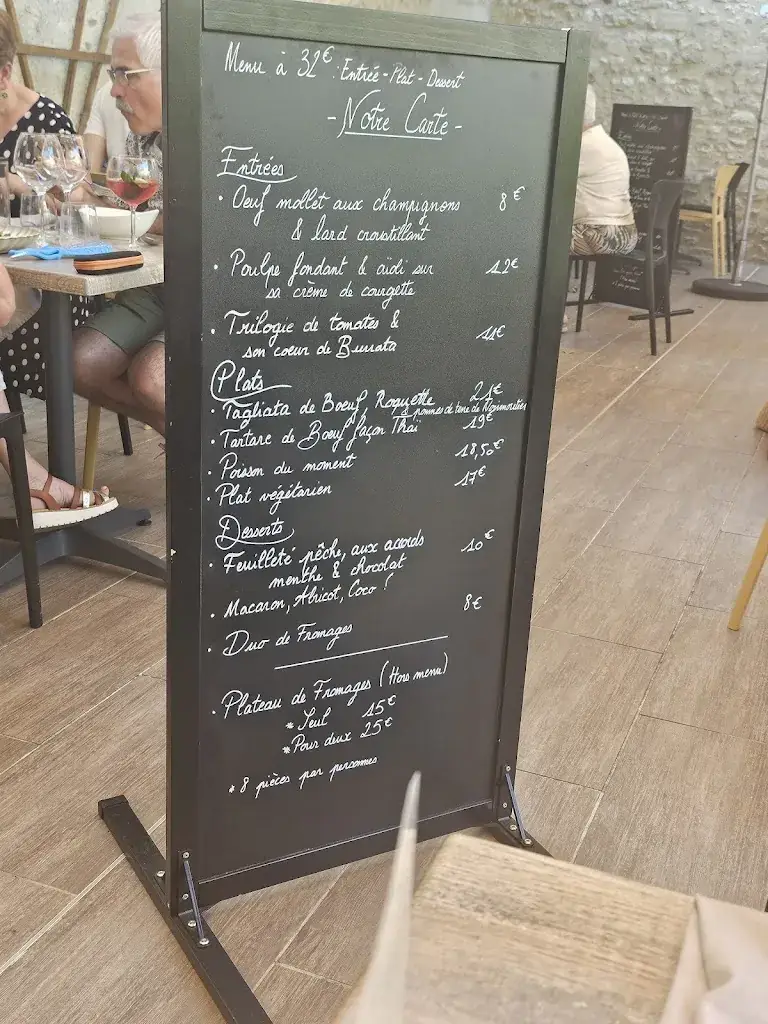 Menu à 32€: Entrée - Plat - Dessert
- Notre Carte -
Entrées
• Oeuf mollet aux champignons 8€
& lard croustillant
• Poulpe fondant & aïoli sur 12€
sa crème de courgette
• Trilogie de tomates & 11€
son coeur de Burrata
Plats
• Tagliata de Boeuf, Roquette 21€
& pommes de terre de Noirmoutier
• Tartare de Boeuf façon Thaï 19€
• Poisson du moment 18,50€
• Plat végétarien 17€
Desserts
• Feuilleté pêche, aux accords 10€
menthe & chocolat
• Macaron, Abricot, Coco !
• Duo de Fromages 8€
• Plateau de Fromages (Hors menu)
* Seul 15€
* Pour deux 25€
* 8 pièces par personnes
Notre Carte